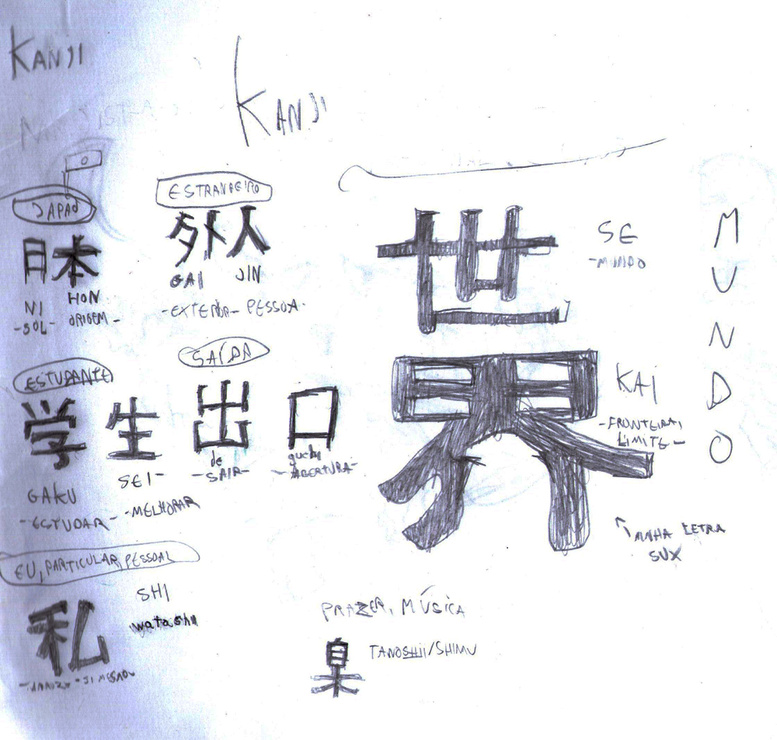 KANJI
KANJI
JAPÃO
日本
NI HON
-SOL- ORIGEM-
ESTRANGEIRO
外人
GAI JIN
-EXTERIOR- PESSOA-
ESTUDANTE
学生
GAKU SEI
-ESTUDAR- -MELHORAR
SAÍDA
出口
de guchi
-SAIR- -ABERTURA-
EU, PARTICULAR, PESSOAL
私
SHI
watashi
世
SE
-MUNDO
界
KAI
-FRONTEIRA,
LIMITE-
MUNDO
MINHA LETRA
SUX
PRAZER, MÚSICA
TANOSHII/SHIMU